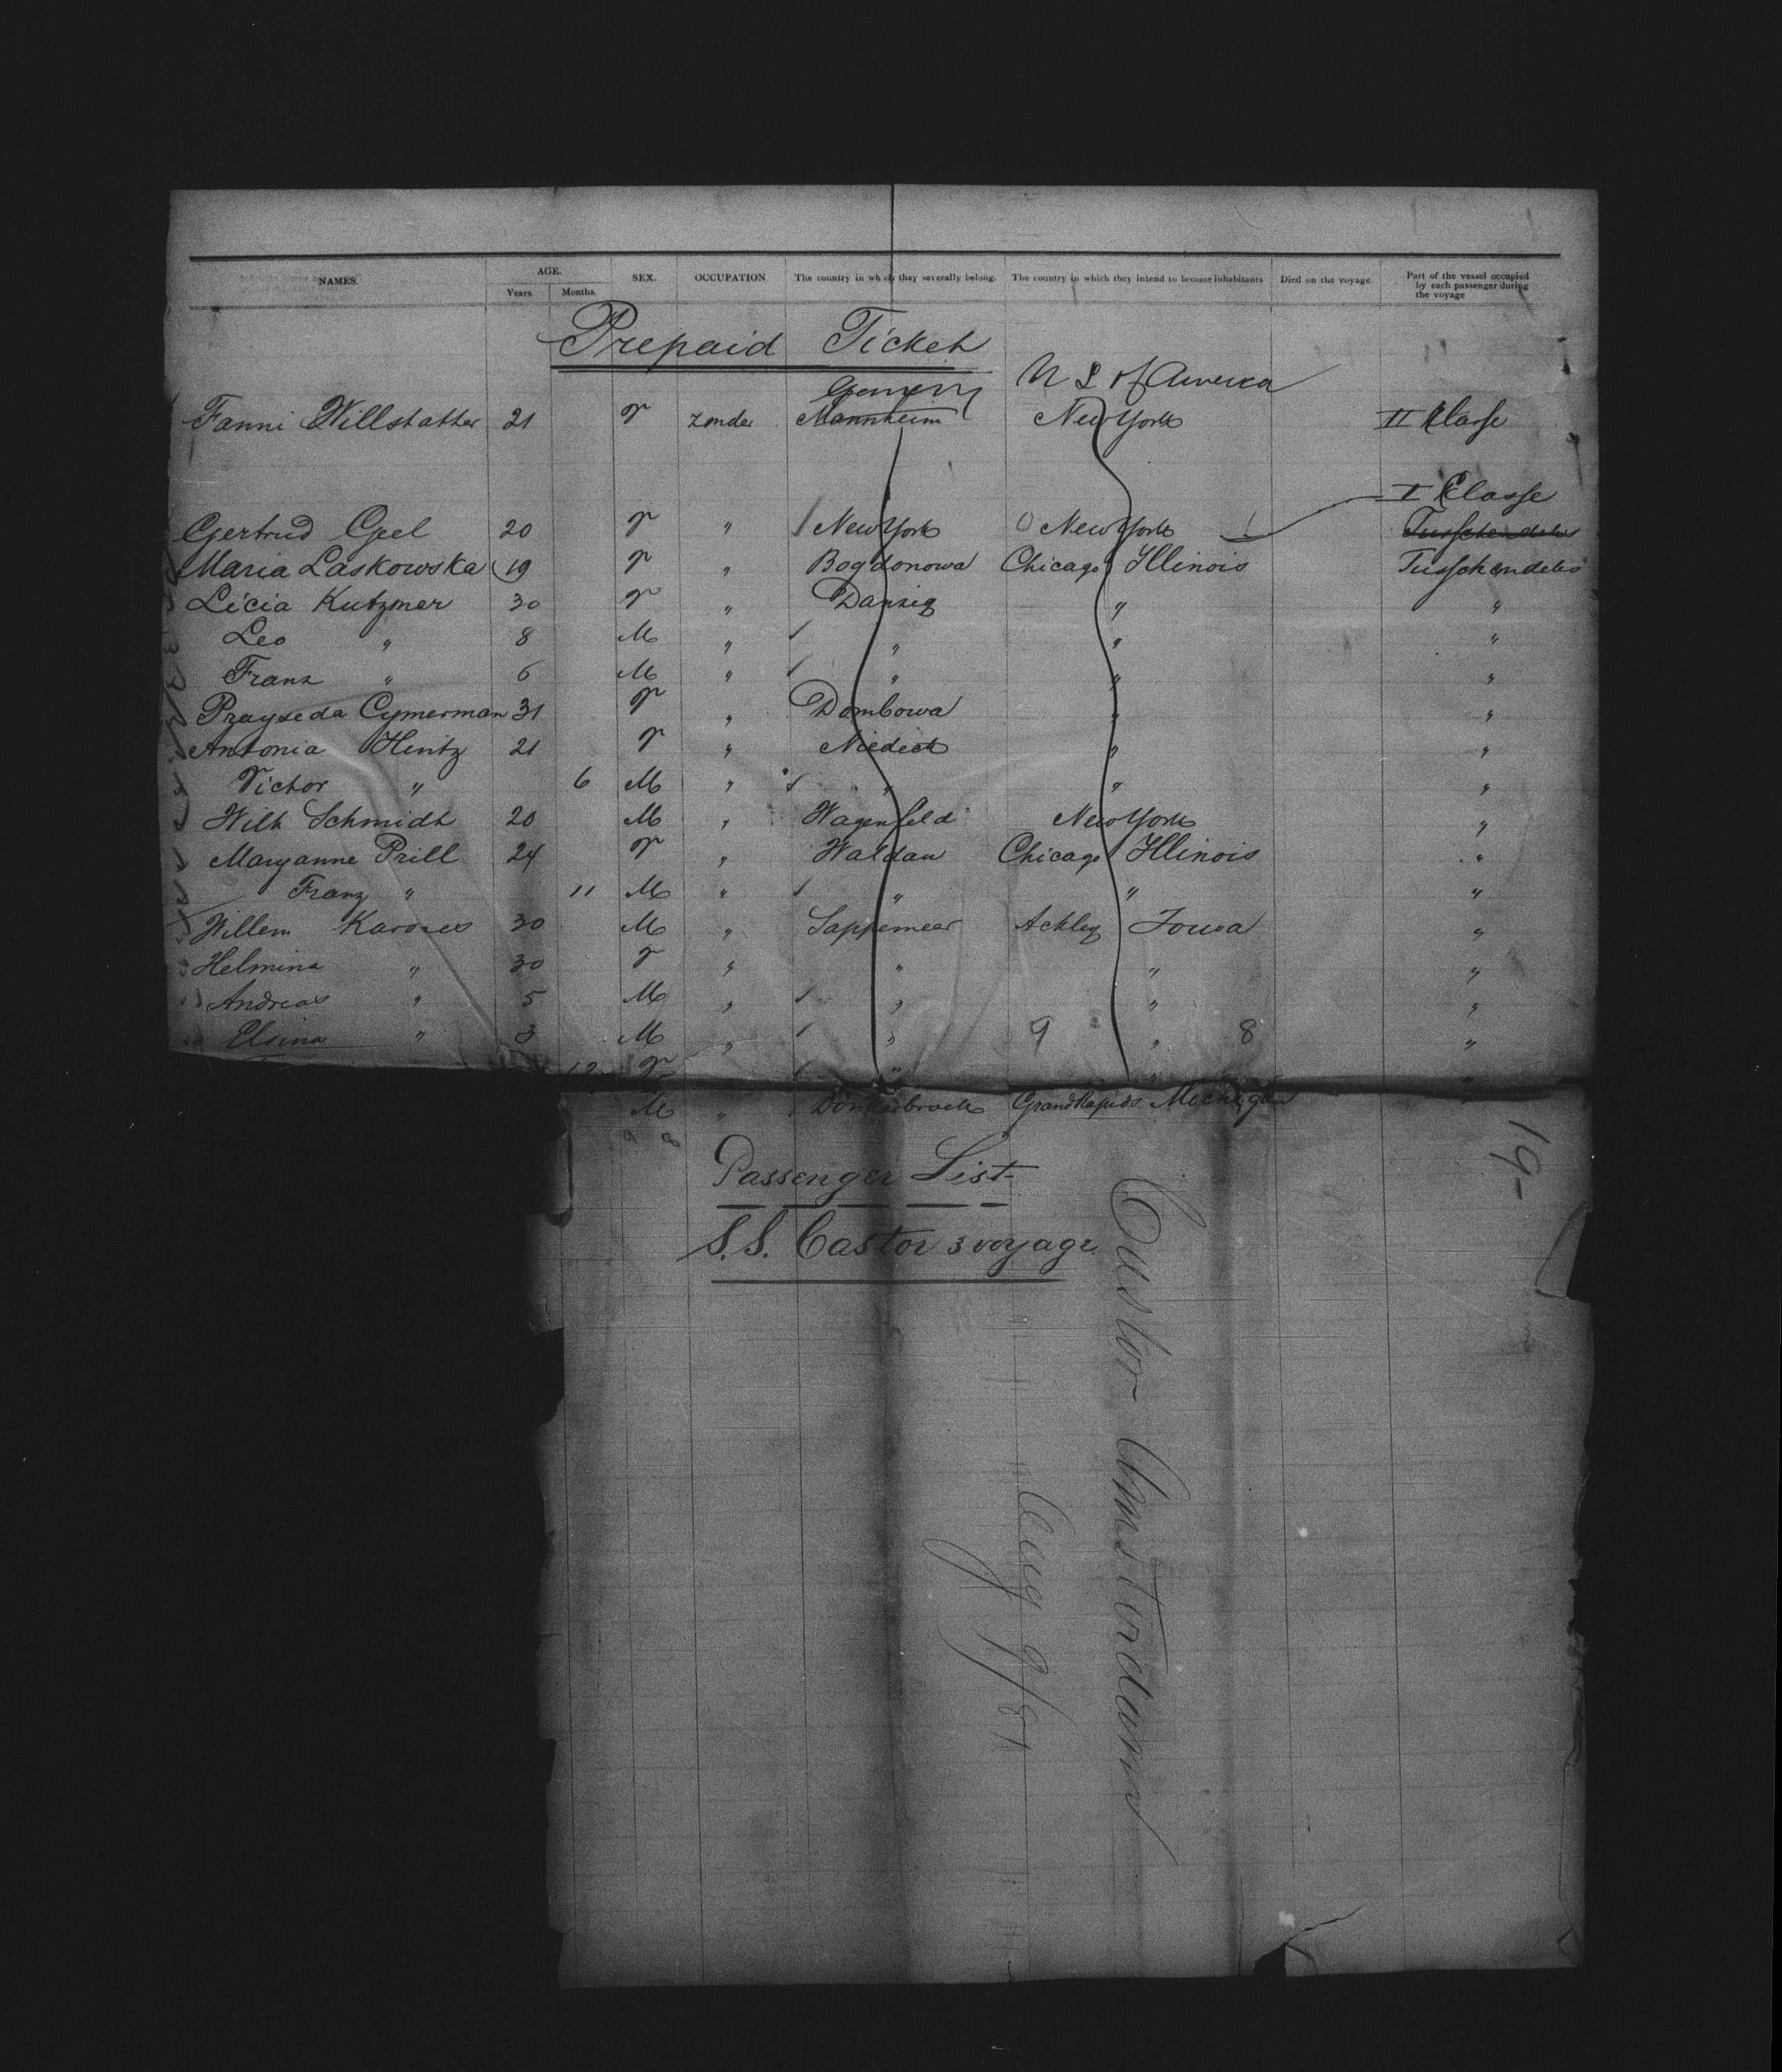 NAMES. AGE. Years. Months. SEX. OCCUPATION The country in which they severally belong. The country in which they intend to become inhabitants Died on the voyage Part of the vessel occupied by each passenger during the voyage
Prepaid Ticket
Germany U S of America
Fanni Willstatter 21 F zonder Mannheim New York II Classe
I Classe
Gertrud Geel 20 F " New York New York Tusschendeks
Maria Laskowska 19 F " Bogdonowa Chicago Illinois Tusschendeks
Licia Kutzmer 30 F " Danzig " "
Leo " 8 M " " " "
Franz " 6 M " " " "
Prayseda Cymerman 31 F " Dombowa " "
Antonia Hintz 21 F " Niedeck " "
Victor " 6 M " " " "
Wilh Schmidt 20 M " Wagenfeld New York "
Maryanne Prill 24 F " Waldau Chicago Illinois "
Franz " 11 M " " " "
Willem 30 M " Sappemeer Ackley Iowa "
Helmina " 30 F " " " "
Andreas " 5 M " " " "
Elsina " 3 M " " 9 " 8 "
F " " "
M " Grand Rapids Michigan "
9 8
Passenger List
S.S. Castor 3 voyage
19-
Castor Amsterdam
Aug 9/87